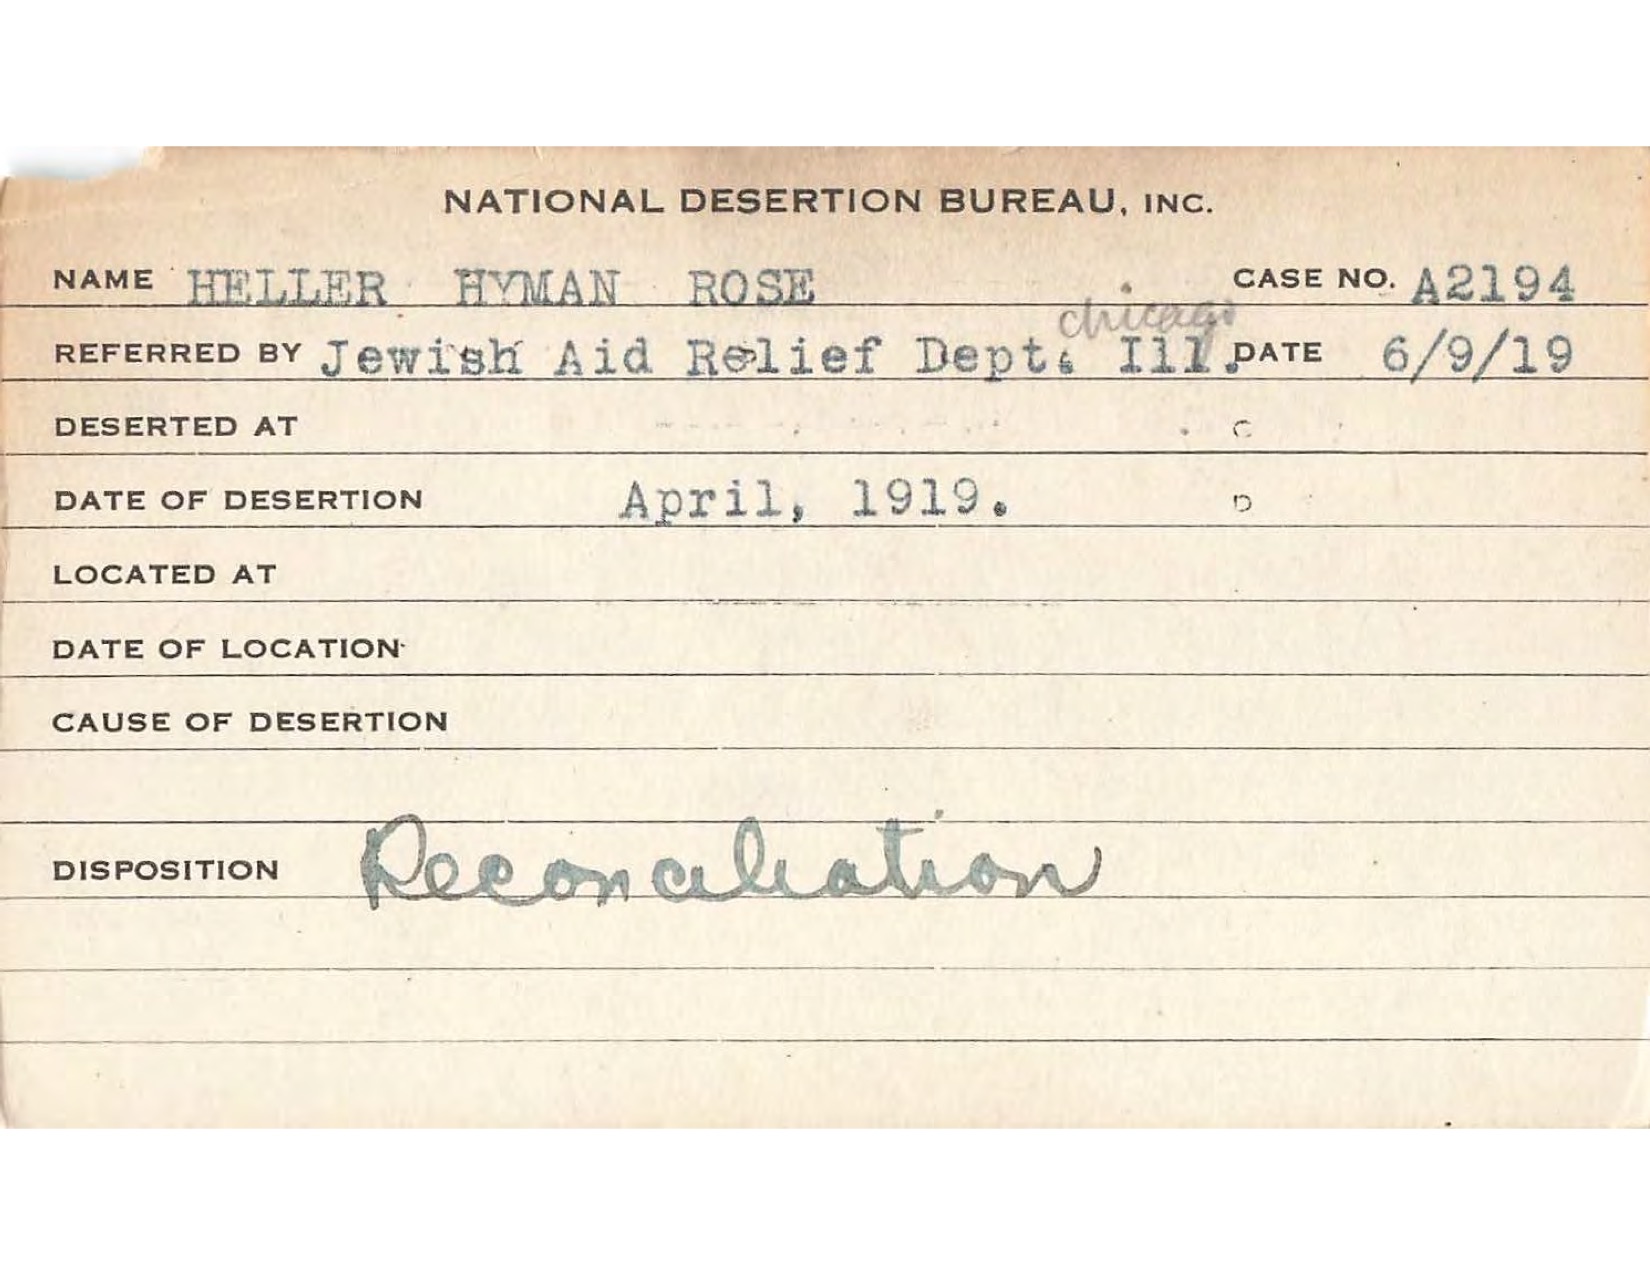 NATIONAL DESERTION BUREAU, INC.
NAME HELLER HYMAN ROSE CASE NO. A2194
chicago
REFERRED BY Jewish Aid Relief Dept. Ill. DATE 6/9/19
DESERTED AT C
DATE OF DESERTION April, 1919. D
LOCATED AT
DATE OF LOCATION
CAUSE OF DESERTION
DISPOSITION Reconciliation